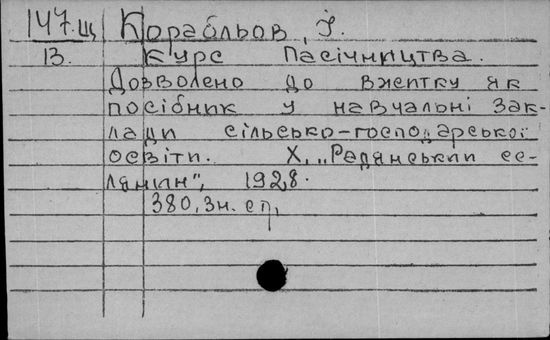 147.щ Корабльов, І.
13. Курс Пасічництва.
Дозволено до вжитку як
посібник у навчальні зак-
лади сільсько-господарської
освіти. Х. „Радянський се-
лянин", 1928.
380, 3н. ст,